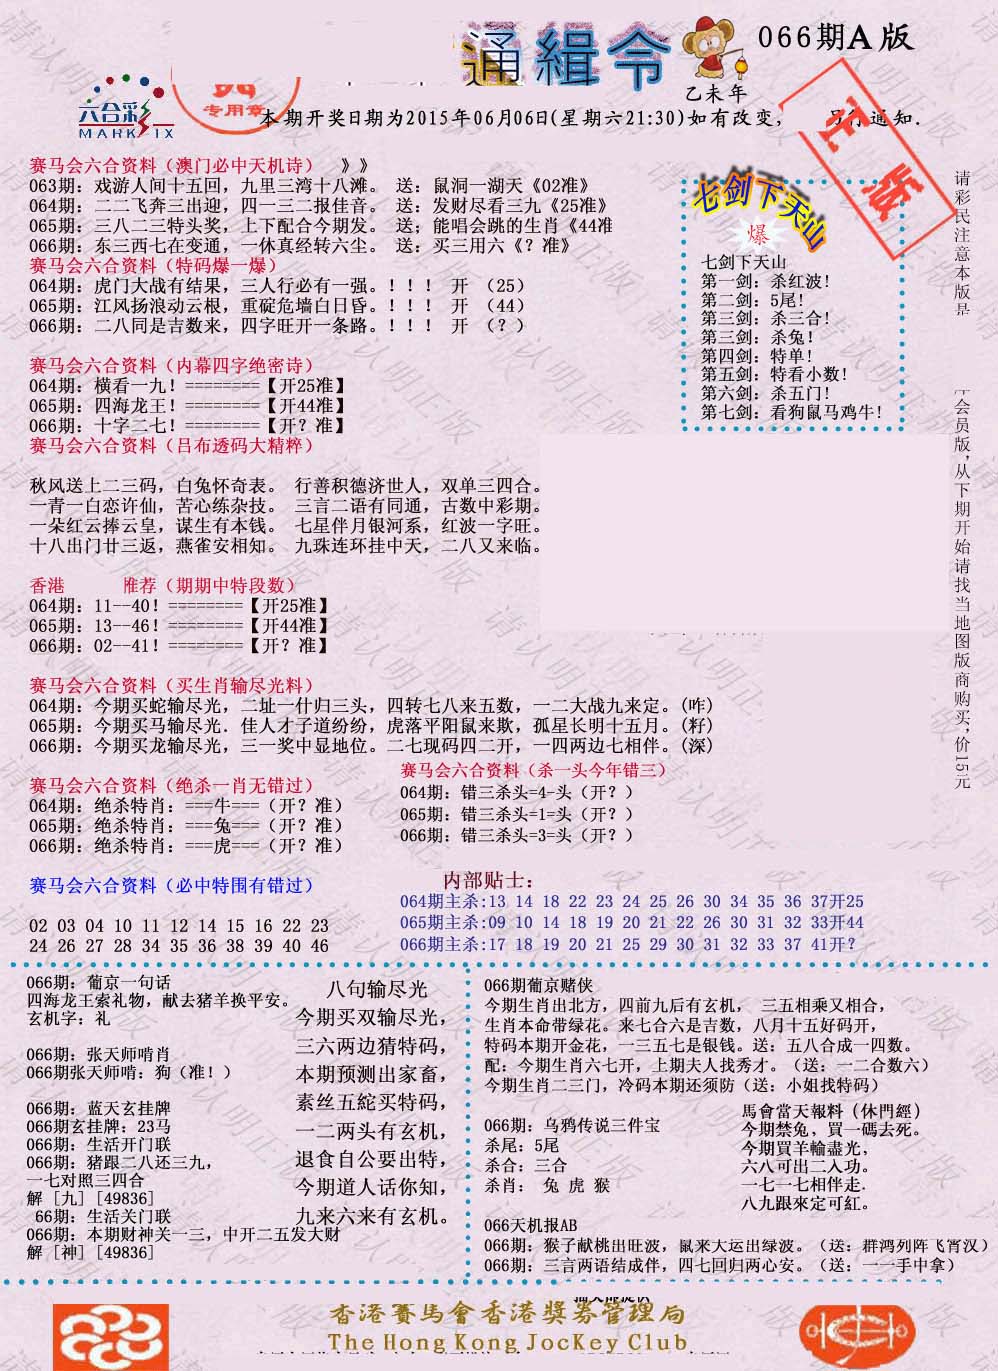 通緝令
066期A版
乙未年
六合彩
MARK SIX
专用章
本期开奖日期为2015年06月06日(星期六21:30)如有改变，
通知.
赛马会六合资料（澳门必中天机诗） 》》
063期：戏游人间十五回，九里三湾十八滩。 送：鼠洞一湖天《02准》
064期：二二飞奔三出迎，四一三二报佳音。 送：发财尽看三九《25准》
065期：三八二三特头奖，上下配合今期发。 送；能唱会跳的生肖《44准
066期：东三西七在变通，一休真经转六尘。 送：买三用六《？准》
赛马会六合资料（特码爆一爆）
064期：虎门大战有结果，三人行必有一强。！！！ 开 （25）
065期：江风扬浪动云根，重碇危墙白日昏。！！！ 开 （44）
066期：二八同是吉数来，四字旺开一条路。！！！ 开 （？）
赛马会六合资料（内幕四字绝密诗）
064期：横看一九！========【开25准】
065期：四海龙王！========【开44准】
066期：十字二七！========【开？准】
赛马会六合资料（吕布透码大精粹）
秋风送上二三码，白兔怀奇表。 行善积德济世人，双单三四合。
一青一白恋许仙，苦心练杂技。 三言二语有同通，古数中彩期。
一朵红云捧云皇，谋生有本钱。 七星伴月银河系，红波一字旺。
十八出门廿三返，燕雀安相知。 九珠连环挂中天，二八又来临。
七剑下天山
爆
七剑下天山
第一剑：杀红波！
第二剑：5尾！
第三剑：杀三合！
第三剑：杀兔！
第四剑：特单！
第五剑：特看小数！
第六剑：杀五门！
第七剑：看狗鼠马鸡牛！
请彩民注意本版是
会员版，从下期开始请找当地图版商购买，价15元
香港 推荐（期期中特段数）
064期：11--40！========【开25准】
065期：13--46！========【开44准】
066期：02--41！========【开？准】
赛马会六合资料（买生肖输尽光料）
064期：今期买蛇输尽光，二址一什归三头，四转七八来五数，一二大战九来定。(咋)
065期：今期买马输尽光．佳人才子道纷纷，虎落平阳鼠来欺，孤星长明十五月。(籽)
066期：今期买龙输尽光，三一奖中显地位。二七现码四二开，一四两边七相伴。(深)
赛马会六合资料（绝杀一肖无错过）
064期：绝杀特肖：===牛===（开？准）
065期：绝杀特肖：===兔===（开？准）
066期：绝杀特肖：===虎===（开？准）
赛马会六合资料（杀一头今年错三）
064期：错三杀头=4-头（开？）
065期：错三杀头=1=头（开？）
066期：错三杀头=3=头（开？）
赛马会六合资料（必中特围有错过）
02 03 04 10 11 12 14 15 16 22 23
24 26 27 28 34 35 36 38 39 40 46
内部贴士：
064期主杀:13 14 18 22 23 24 25 26 30 34 35 36 37开25
065期主杀:09 10 14 18 19 20 21 22 26 30 31 32 33开44
066期主杀:17 18 19 20 21 25 29 30 31 32 33 37 41开？
066期：葡京一句话
四海龙王索礼物，献去猪羊换平安。
玄机字：礼
066期：张天师啃肖
066期张天师啃：狗（准！）
066期：蓝天玄挂牌
066期玄挂牌：23马
066期：生活开门联
066期：猪跟二八还三九，
一七对照三四合
解［九］[49836]
66期：生活关门联
066期：本期财神关一三，中开二五发大财
解［神］[49836]
八句输尽光
今期买双输尽光，
三六两边猜特码，
本期预测出家畜，
素丝五紽买特码，
一二两头有玄机，
退食自公要出特，
今期道人话你知，
九来六来有玄机。
066期葡京赌侠
今期生肖出北方，四前九后有玄机， 三五相乘又相合，
生肖本命带绿花。来七合六是吉数，八月十五好码开，
特码本期开金花，一三五七是银钱。送：五八合成一四数。
配：今期生肖六七开，上期夫人找秀才。（送：一二合数六）
今期生肖二三门，冷码本期还须防（送：小姐找特码）
066期：乌鸦传说三件宝
杀尾：5尾
杀合：三合
杀肖： 兔 虎 猴
馬會當天報料（休門經）
今期禁兔，買一碼去死。
今期買羊輸盡光，
六八可出二入功。
一七一七相伴走.
八九跟來定可紅。
066天机报AB
066期：猴子献桃出旺波，鼠来大运出绿波。（送：群鸿列阵飞霄汉）
066期：三言两语结成伴，四七回归两心安。（送：一一手中拿）
香港賽馬會香港獎券管理局
The Hong Kong JocKey Club